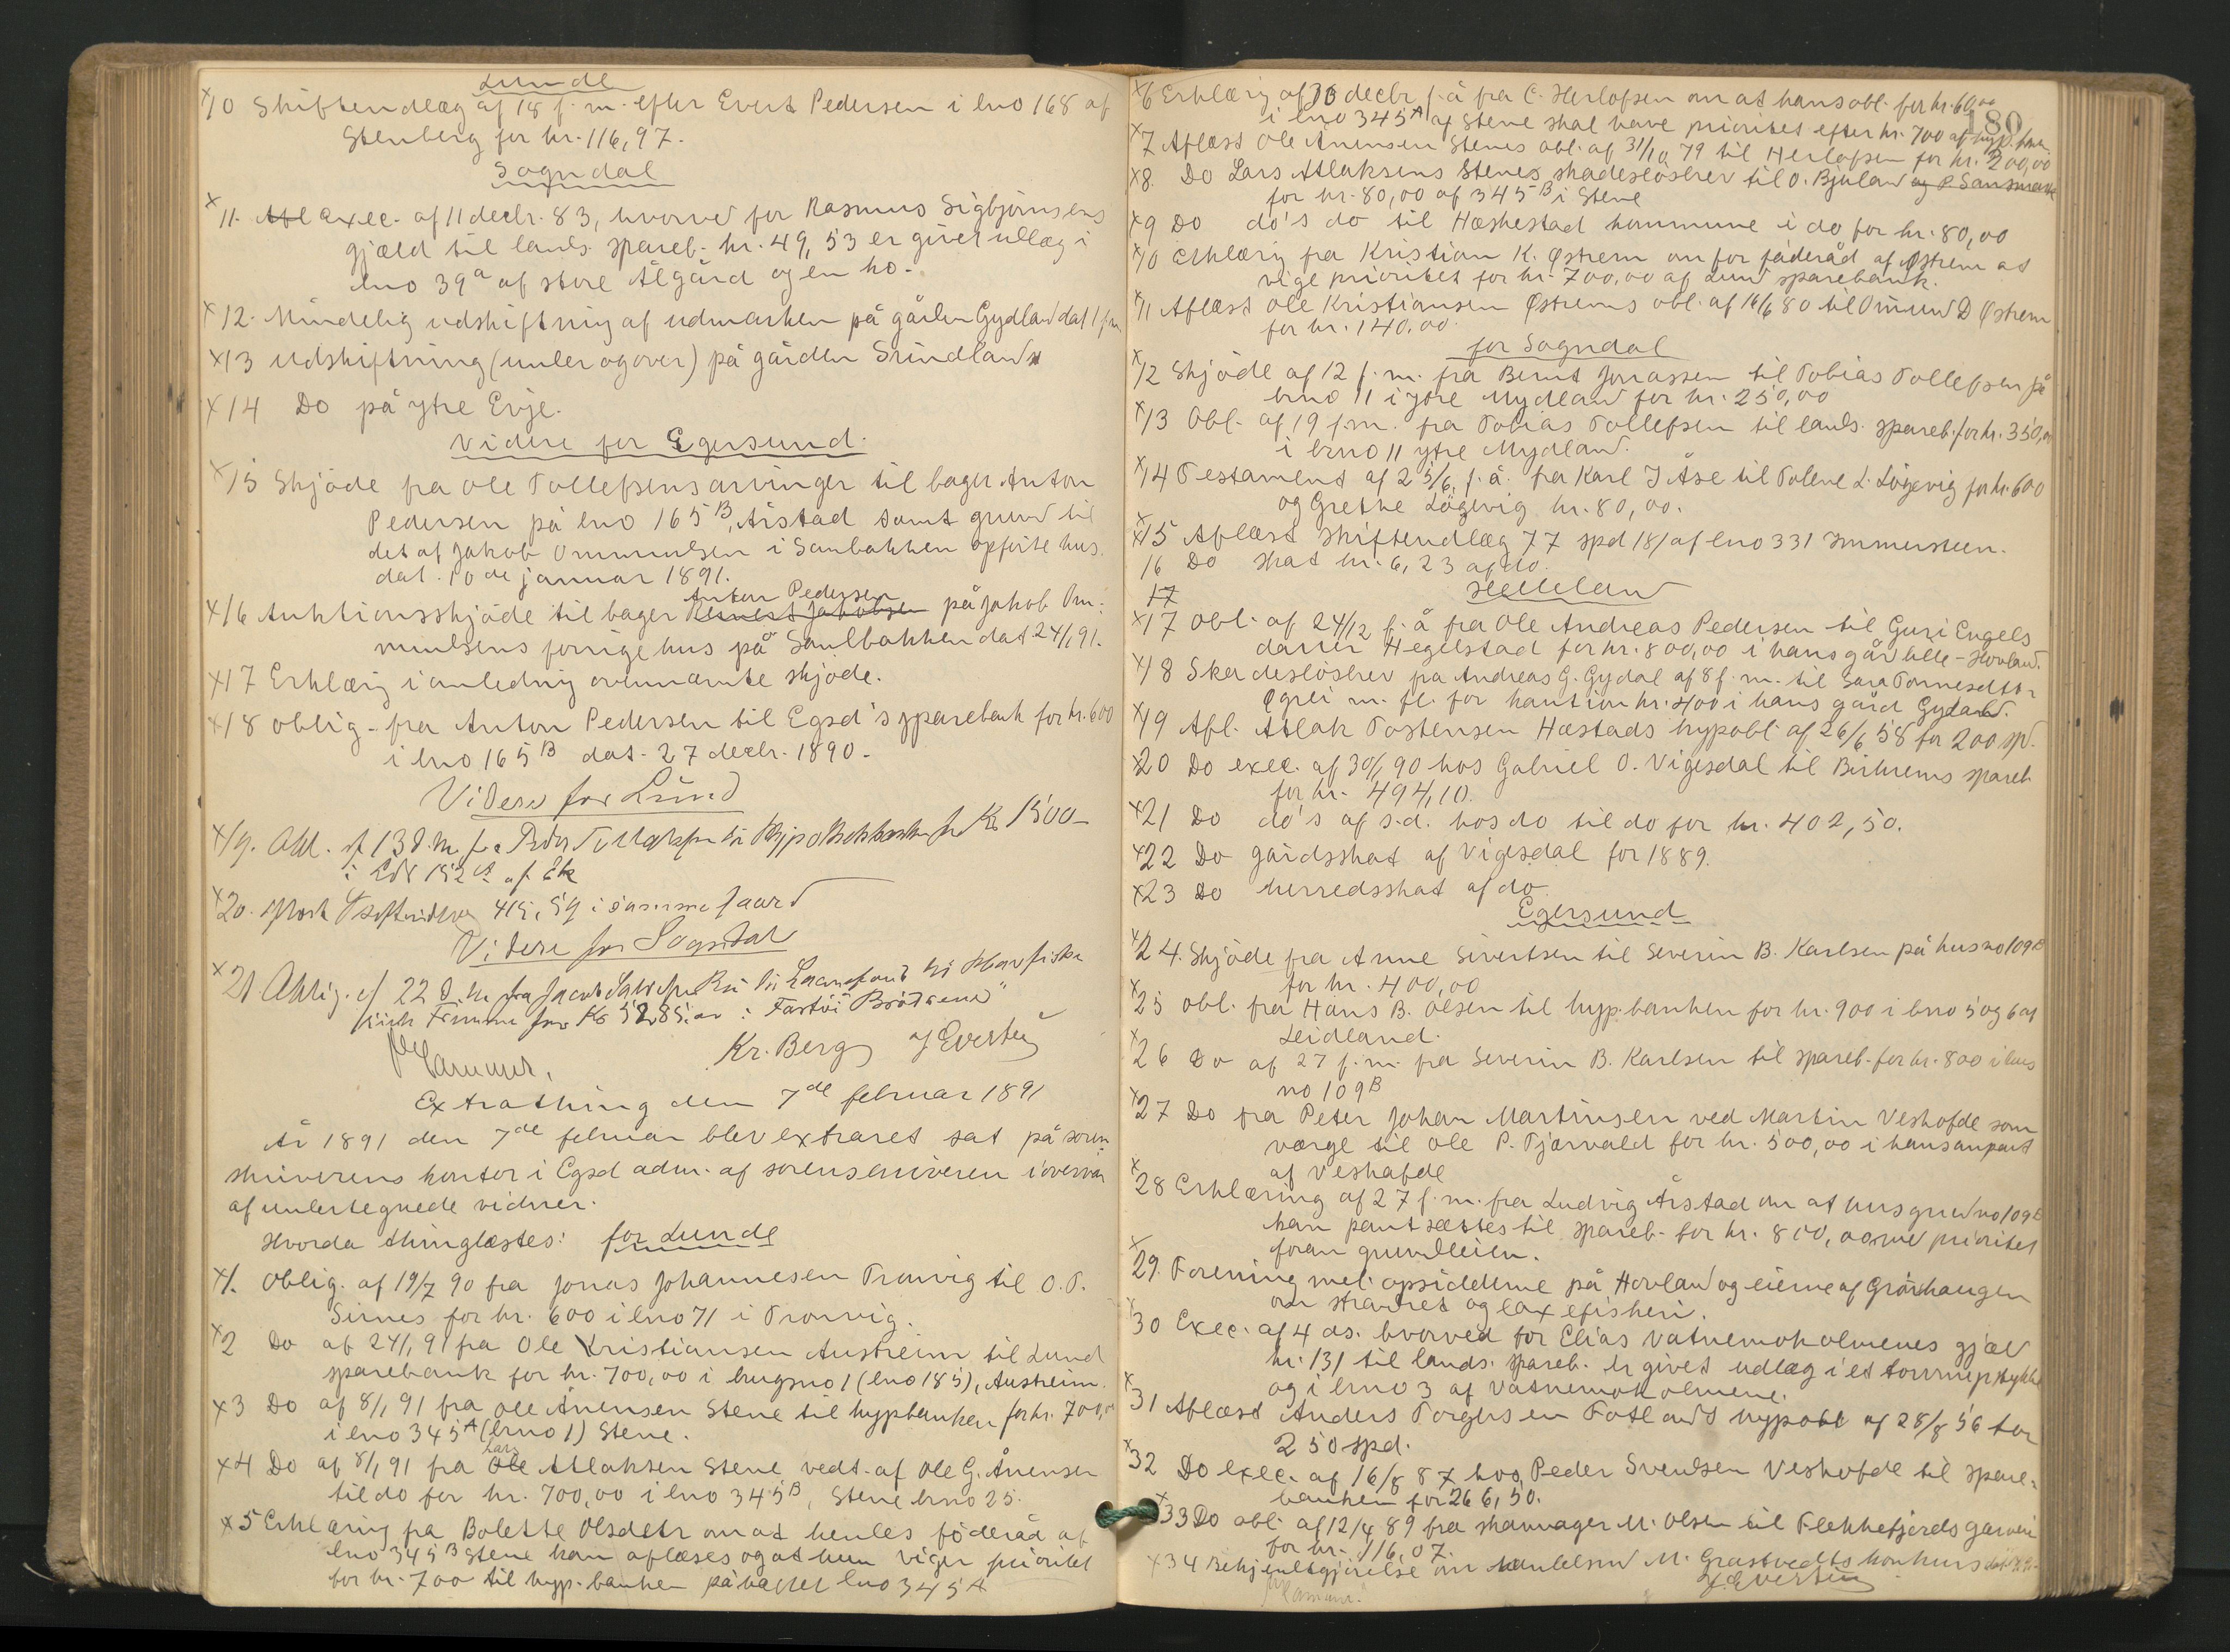 Lunde
×10 Skiftendlæg af 18 f. m. efter Evert Pedersen i lno 168 af
Stenberg for kr. 116,97.
Sogndal
×11. Afl exec. af 11 decbr. 83, hvorved for Rasmus Sigbjørnsens
gjæld til lands. spareb. kr. 49,53 er givet udlæg i
lno 39a af store Ålgård og en ko.
×12. Mindelig udskiftning af udmarken på gården Gydland dat 1 f m
×13 Udskiftning (under og over) på gården Svindland
×14 Do på ytre Evje.
Videre for Egersund.
×15 Skjøde fra Ole Tollefsens arvinger til bager Anton
Pedersen på lno 165B, Årstad samt grund til
det af Jakob Ommundsen i Sandbakken opførte hus.
dat. 10de januar 1891.
Anton Pedersen
×16 Auktionsskjøde til bager Jakobsen på Jakob Om-
mundsens forrige hus på Sandbakken dat 24/1 91.
×17 Erklærig i anlednig ovennævnte skjøde.
×18 oblig. fra Anton Pedersen til Egsd's sparebank for kr. 600
i lno 165B dat. 27 decbr. 1890.
Videre for Lund
×19. Obl. af 13 d. m. fra Peder Tollaksen til Hypothekbanken for Kr 1500-
i LN 152a af Eik
×20. Aflæst Skiftendlæg 415,59 i samme gaard
Videre for Sogndal
×21 Oblig. af 22 d. m. fra Jacob til Laanefond til Havfiske
for Kr 5285.00 i Fartøi "Brødrene"
Kr. Berg J Evertsen
Extrathing den 7de februar 1891
År 1891 den 7de februar blev extraret sat på soren-
skriverens kontor i Egsd adm. af sorenskriveren i overvær
af undertegnede vidner.
Hvorda thinglæstes: for Lunde
×1. Oblig. af 19/7 90 fra Jonas Johannesen Tronvig til O. T.
Sirnes for kr. 600 i lno 71 i Tronvig.
×2 Do af 24/1 91 fra Ole Kristiansen Austreim til Lund
sparebank for kr. 700,00 i brugsno 1 (lno 185), Austreim.
×3 Do af 8/1 91 fra Ole Ånensen Stene til hypbanken for kr. 700,00
i lno 345A (brno 1) Stene.
Lars
×4 Do af 8/1 91 fra Ole Atlaksen Stene vedt. af Ole G. Ånensen
til do for kr. 700,00 i lno 345B, Stene brno 25.
×5 Erklæring fra Bolette Olsdatr om at hendes føderåd af
lno 345B Stene kan aflæses og at hun viger prioritet
for kr. 700 til hyp. banken på lno 345A
180
×6 Erklærig af 30 decbr f. å fra C. Herlofsen om at hans obl. for kr. 6000
i lno 345A af Stene skal have prioritet efter kr. 700 af hyp. banken
×7 Aflæst Ole Ånensen Stenes obl. af 31/10 79 til Herlofsen for kr. 200,00
×8. Do Lars Atlaksens Stenes skadesløsbrev til O. Bjuland og P Sansmark
for kr. 80,00 af 345B i Stene
×9 Do do's do til Hæskestad kommune i do for kr. 80,00
×10 Erklærig fra Kristian K. Østrem om for føderåd af Østrem at
vige prioritet for kr. 700,00 af Lund sparebank.
×11 Aflæst Ole Kristiansen Østrems obl. af 16/6 80 til Omund D Østrem
for kr. 140,00.
for Sogndal
×12 Skjøde af 12 f. m. fra Bernt Jonassen til Tobias Tollefsen på
brno 11 i ytre Mydland for kr. 250,00
×13 Obl. af 19 f. m. fra Tobias Tollefsen til lands. spareb. for kr. 350,00
i brno 11 ytre Mydland.
×14 Testament af 25/6 f. å. fra Karl J Åse til Tolene L. Løgevig for kr. 600
og Grethe Løgevig kr. 80,00.
×15 Aflæst skiftendlæg 77 spd 18/ af lno 331 Immersteen.
16 Do skat kr. 6,23 af do.
17
Helleland
×17 Obl. af 24/12 f. å fra Ole Andreas Pedersen til Guri Engels
datter Hegelstad for kr. 800,00 i hans gård lille-Hovland.
×18 Skadesløsbrev fra Andreas G. Gydal af 8 f. m. til Sara Tønnesdtr
Egeli m. fl. for kaution kr. 400 i hans gård Gydal.
×19 Afl. Atlak Tostensen Hæstads hypobl. af 26/6 58 for 200 sp.
×20 Do exec. af 30/1 90 hos Gabriel O. Vigesdal til Birkrems spareb
for kr. 494,10.
×21 Do do's af s.d. hos do til do for kr. 402,50.
×22 Do gårdsskat af Vigesdal for 1889.
×23 Do herredsskat af do
Egersund
×24. Skjøde fra Anne Sivertsen til Severin B. Karlsen på hus no 109B
for kr. 400,00
×25 Obl. fra Hans B. Olsen til hyp. banken for kr. 900 i brno 5 og 6 af
Leidland.
×26 Do af 27 f. m. fra Severin B. Karlsen til spareb. for kr. 800 i hus
no 109B
×27 Do fra Peter Johan Martinsen ved Martin Veshofde som
værge til Ole P. Tjørvald for kr. 500,00 i hans anpart
af Veshafde
×28 Erklæring af 27 f. m. fra Ludvig Årstad om at husgrund no 109B
kan pantsættes til spareb. for kr. 800,00 med prioritet
foran grundleien.
×29. Forening mel. opsidderne på Hovland og eierne af Grønhaugen
om strandret og laxefiskeri.
×30 Exec. af 4 ds. hvorved for Elias Vatnemokolmenes gjæld
kr. 131 til lands. spareb. er givet udlæg i et stykke
og i brno 3 af Vatnemokolmene.
×31 Aflæst Anders Torgersen Fotlands hypobl af 28/8 56 for
250 spd.
×32 Do exec. af 16/8 87 hos Peder Svendsen Veshofde til spare-
banken for 266,50.
×33 Do obl. af 12/4 89 fra skomager M. Olsen til Flekkefjords garveri
for kr. 116,07
×34 Bekjendtgjørelse om handelsmd M. Grastvedts konkurs
J. Evertsen